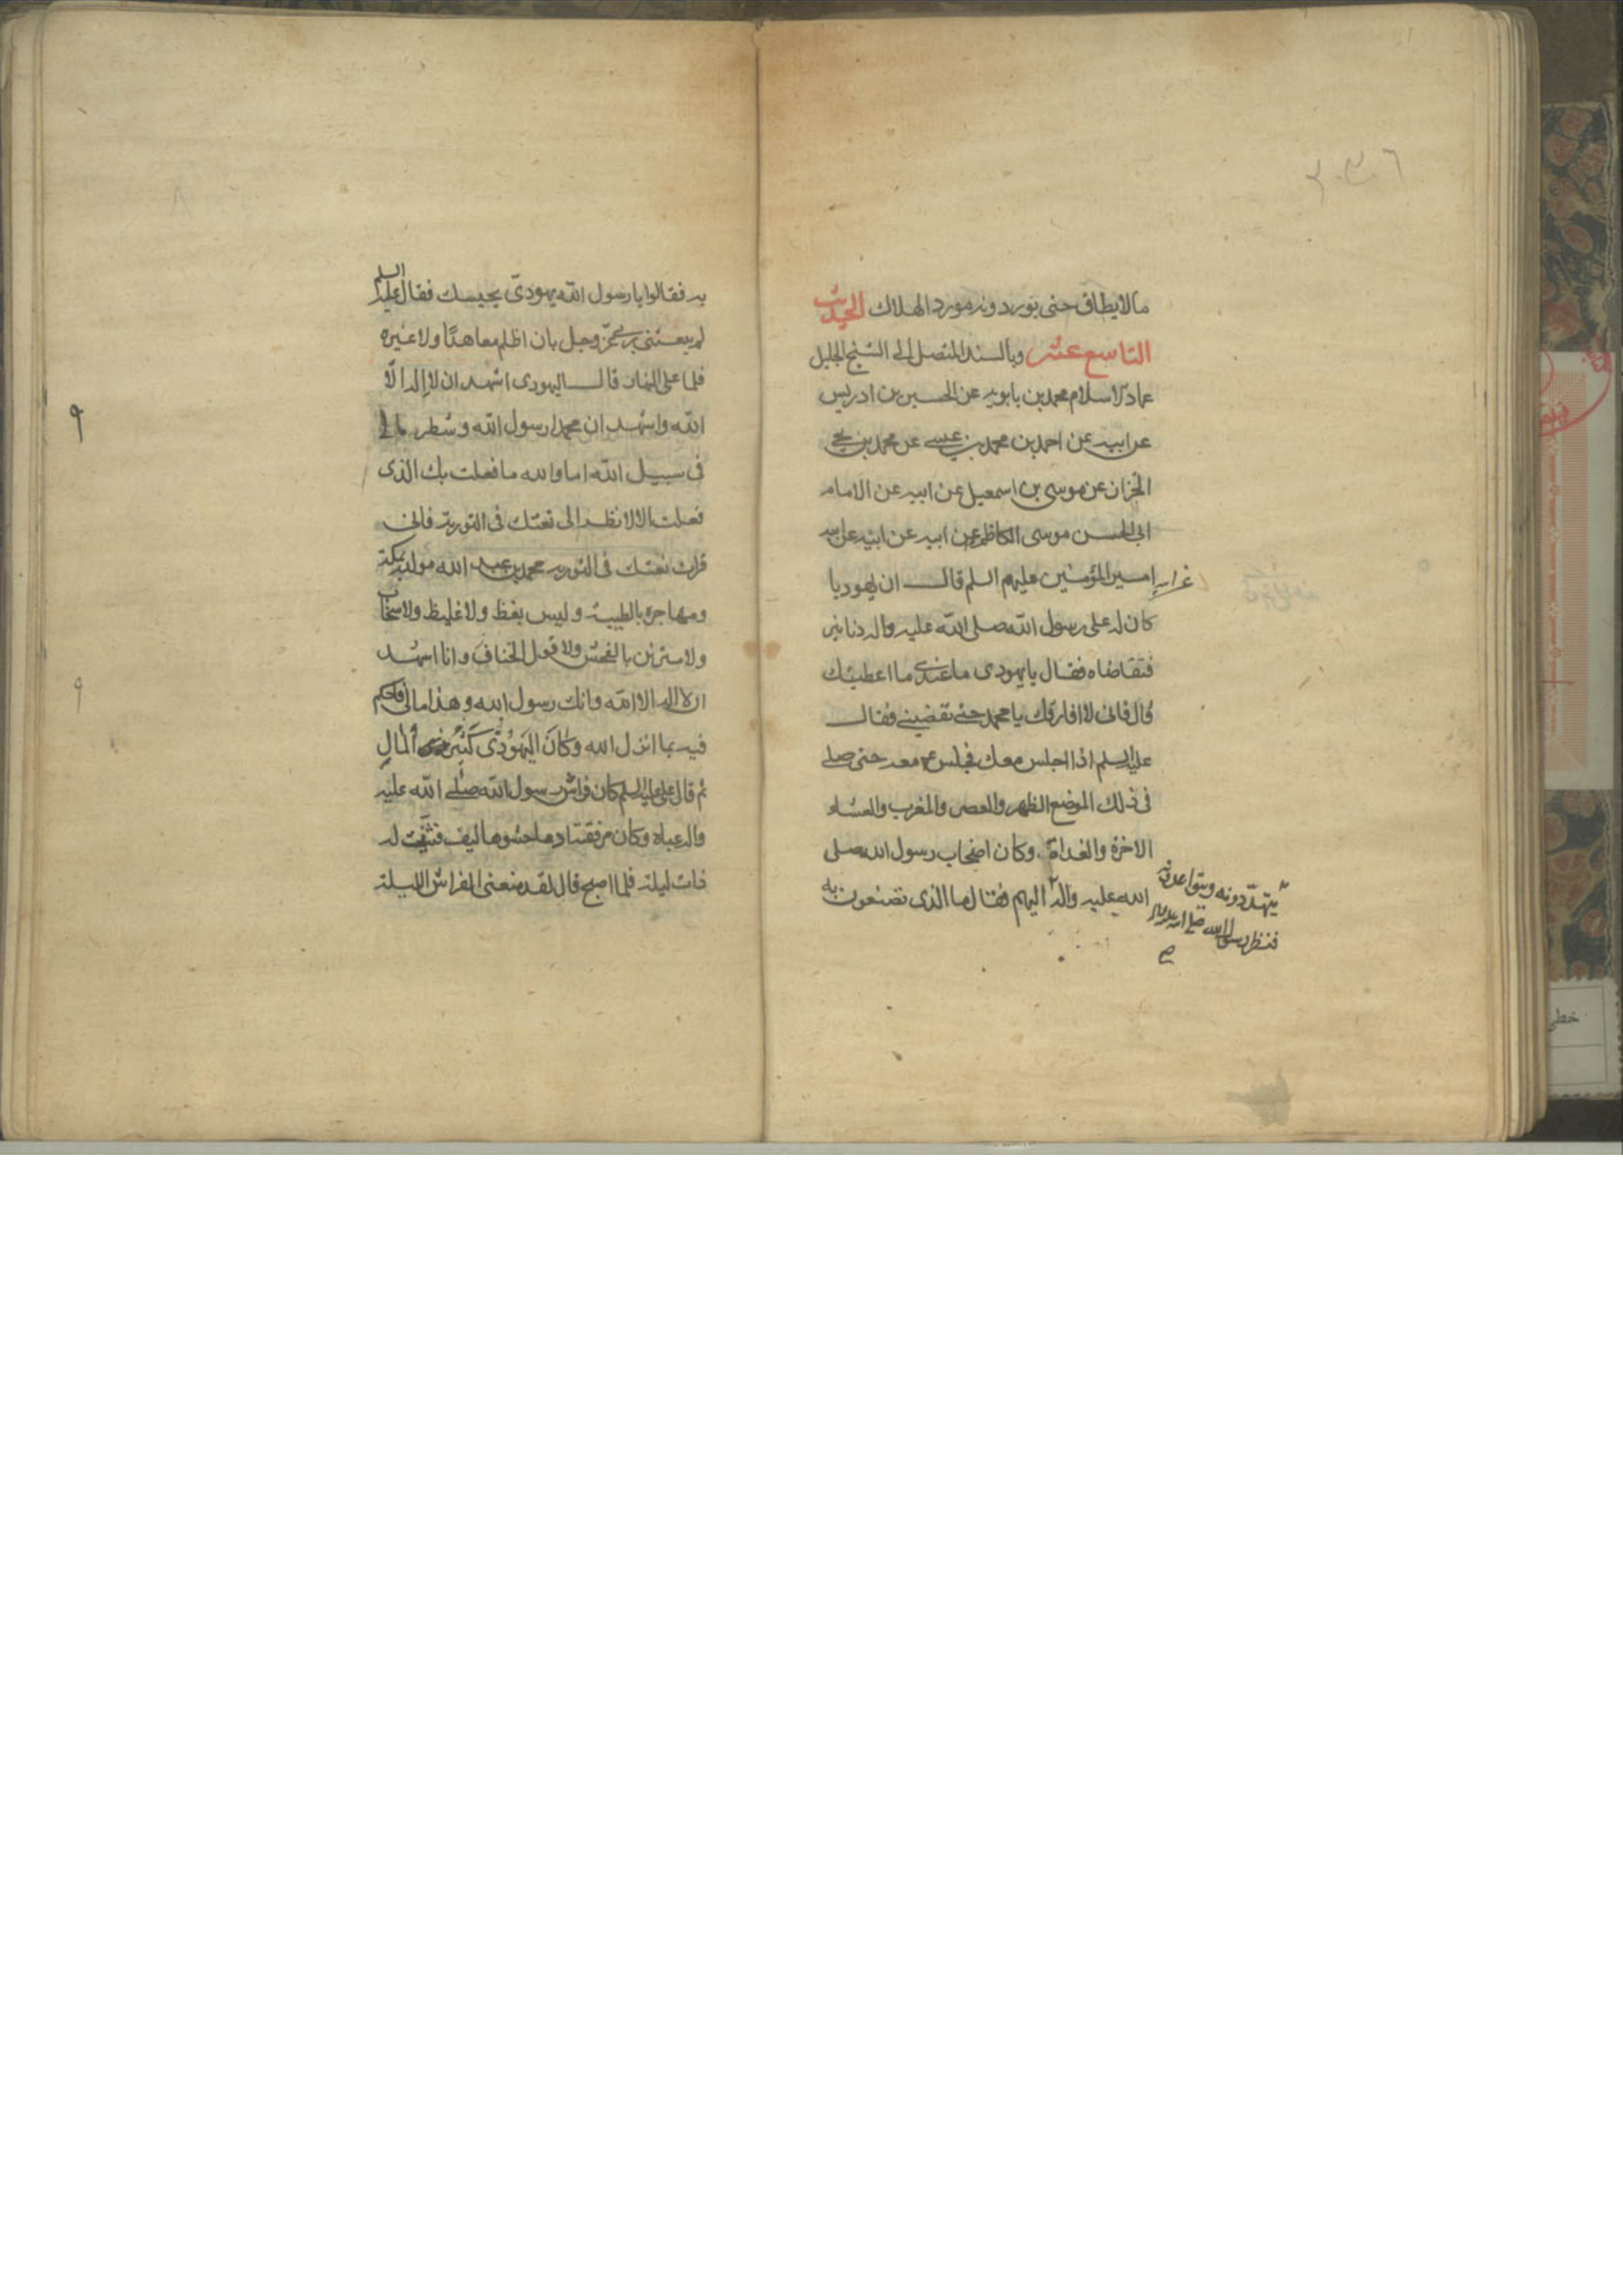 ما لا يطاق حتى يوردونه مورد الهلاك الحديث
التاسع عشر وبالسند المتصل الى الشيخ الجليل
عماد الاسلام محمد بن بابويه عن الحسين بن ادريس
عن ابيه عن احمد بن محمد بن عيسى عن محمد بن يحيى
الخزان عن موسى بن اسمعيل عن ابيه عن الامام
ابى الحسن موسى الكاظم عن ابيه عن ابيه عن ابيه
امير المؤمنين عليهم السلم قال ان يهوديا
كان له على رسول الله صلى الله عليه واله دنانير
فتقاضاه فقال يا يهودى ما عندى ما اعطيك
قال فانى لا افارقك يا محمد حتى تقضينى فقال
عليه السلم اذا اجلس معك فجلس معه حتى صلى
فى ذلك الموضع الظهر والعصر والمغرب والعشاء
الاخرة والغداة وكان اصحاب رسول الله صلى
الله عليه واله اليهم فقال ما الذى تصنعون به
يتهددونه ويتواعدونه
فنظر رسول الله صلى الله عليه واله
صح
به فقالوا يا رسول الله يهودى يحبسك فقال عليه السلم
لم يبعثنى ربى عز وجل بان اظلم معاهدا ولا غيره
فلما على النهار قال اليهودى اشهد ان لا اله الا
الله واشهد ان محمدا رسول الله وشطر مالى
فى سبيل الله اما والله ما فعلت بك الذى
فعلت الا لانظر الى نعتك فى التورية فانى
قرات نعتك فى التورية محمد بن عبد الله مولده بمكة
ومهاجره بالطيبة وليس بفظ ولا غليظ ولا سخاب
ولا متزين بالفحش ولا قول الخناف وانا اشهد
ان لا اله الا الله وانك رسول الله وهذا مالى فاحكم
فيه بما انزل الله وَكانَ اليَهُودّى كَثيرُ المالِ
ثم قال على عليه السلم كان فراش رسول الله صلى الله عليه
واله عباه وكان مرفقته ادما حشوها ليف فثنيت له
ذات ليلة فلما اصبح قال لقد منعنى الفراش الليلة
٩
٩